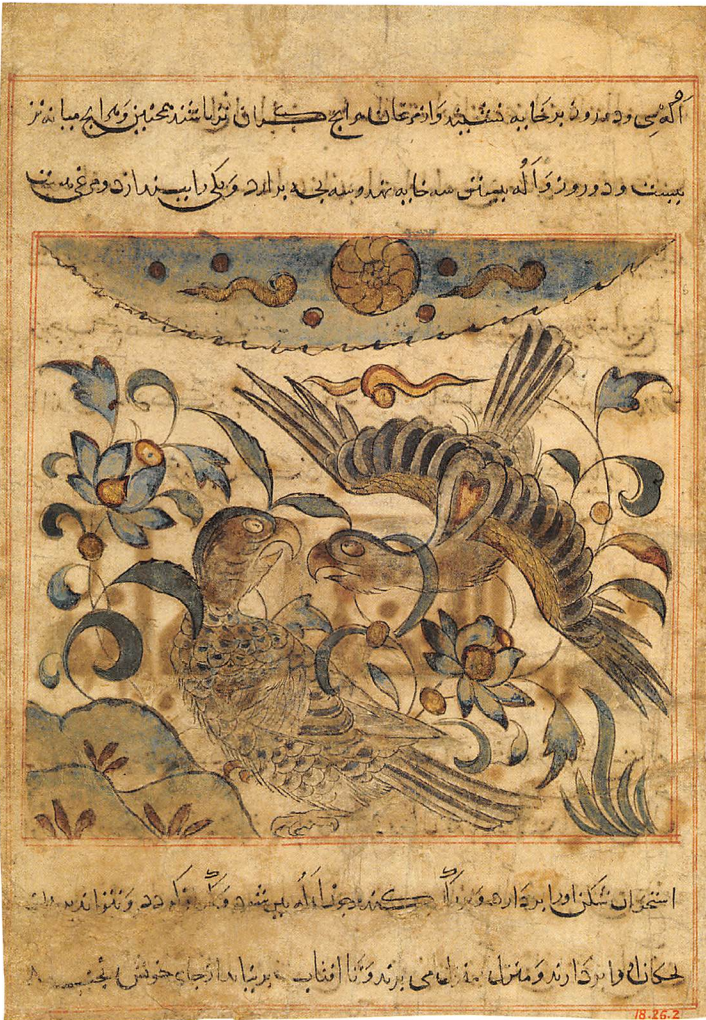 اَلُه سی و دو روز بر خایه نشیند و از مرغان هرانچ کران تر باشند همچنین و هرانچ میانه تر
بیست و دو روز و اَلُه بیشتر سه خایه نهد و سه بچه برارد و یکی را بیندازد و مرغی هست
استخوان شکن او را بردارد و بزرگ کند و چون اَلُه پیر شود و کردد و نتواند
بچکان او را بردارند و منزل می برند و تا افتاب برنیاید از جای خویش نجنبد
18.26.2